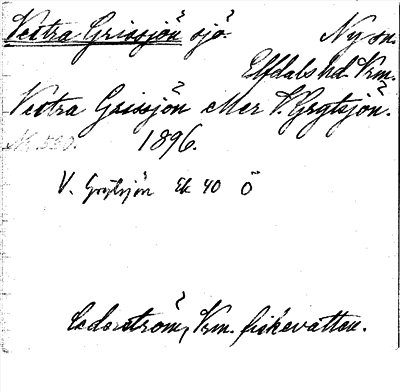 Vestra Grissjön sjö. Ny sn.
Elfdals hd. Vrm.
Vestra Grissjön eller V. Grytsjön.
1896.
V. Grytsjön Ek 40 Ö
Cederström, Vrm. fiskevatten.